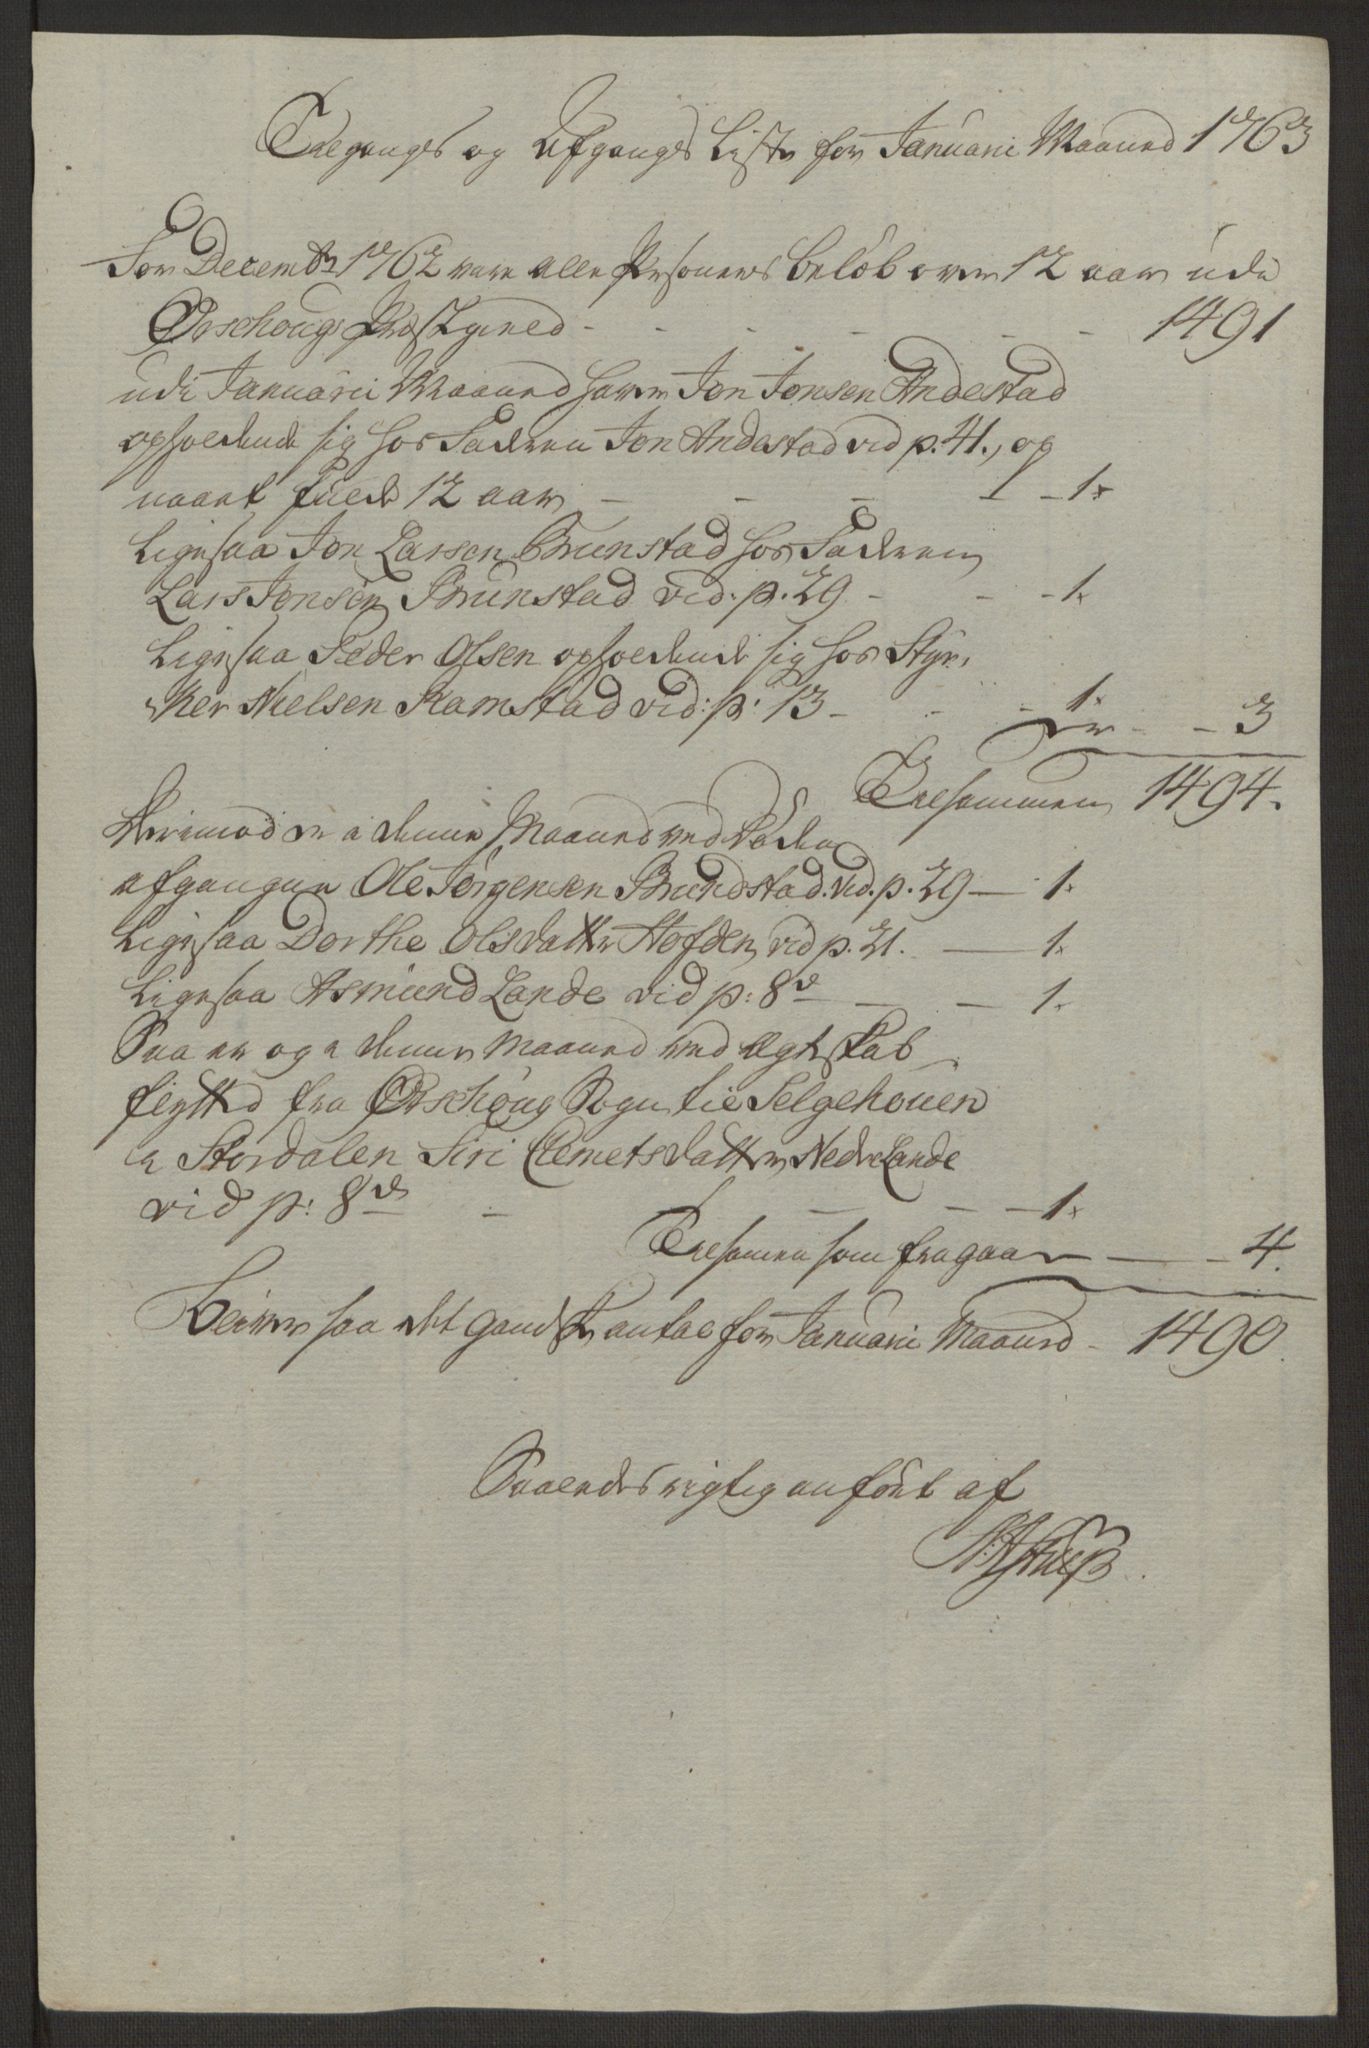 Tilgangs og Afgangs Liste for Januarii Maaned 1763
For Decembr 1762 vare alle Personers beløb over 12 aar udi
Ørschougs Præstegield - - - - - - 1491
udi Januarii Maaned haver Jon Jonsen Andestad
opholdende sig hos Faderen Jon Andestad vid p. 41., og
naaet fulde 12 aar - - - - - 1.
Ligesaa Jon Larsen Brunstad hos Faderen
Lars Jonsen Brunstad vid. p. 29 - - - 1.
Ligesaa Peder Olsen opholdende sig hos Styr-
ker Nielsen Ramstad vid: p: 13 - - - 1.
er - - 3
Tilsammen 1494.
Herimod er i denne Maaned ved Døden
afgangen Ole Jørgensen Brundstad. vid. p. 29 — 1.
Ligesaa Dorthe Olsdatter Hofden vid p. 21. — 1.
Ligesaa Asmund Lande vid p: 8de — — 1.
Saa er og i denne Maaned ved Ægteskab
flytted fra Ørschoug Sogn til Selgehouen
i Stordalen Siri Clemetsdatter Nedre Lande
vid p: 8de - - - - - 1.
Tilsamen som fragaar — - 4.
Bliver saa det gandske antal for Januarii Maaned - 1490.
Saaledes rigtig anført af